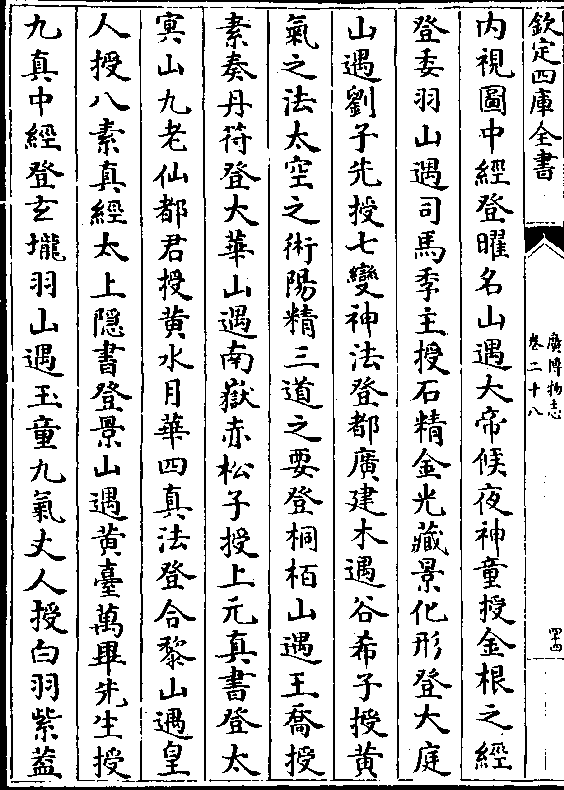 欽定四庫全書
廣博物志
卷二十八
四四
內視圖中經登曜名山遇大帝候夜神童授金根之經
登委羽山遇司馬季主授石精金光藏景化形登大庭
山遇劉子先授七變神法登都廣建木遇谷希子授黄
氣之法太空之術陽精三道之要登桐栢山遇王喬授
素奏丹符登大華山遇南嶽赤松子授上元真書登太
㝠山九老仙都君授黄水月華四真法登合黎山遇皇
人授八素真經太上隠書登景山遇黄臺萬畢先生授
九真中經登玄壠羽山遇玉童九氣丈人授白羽紫葢